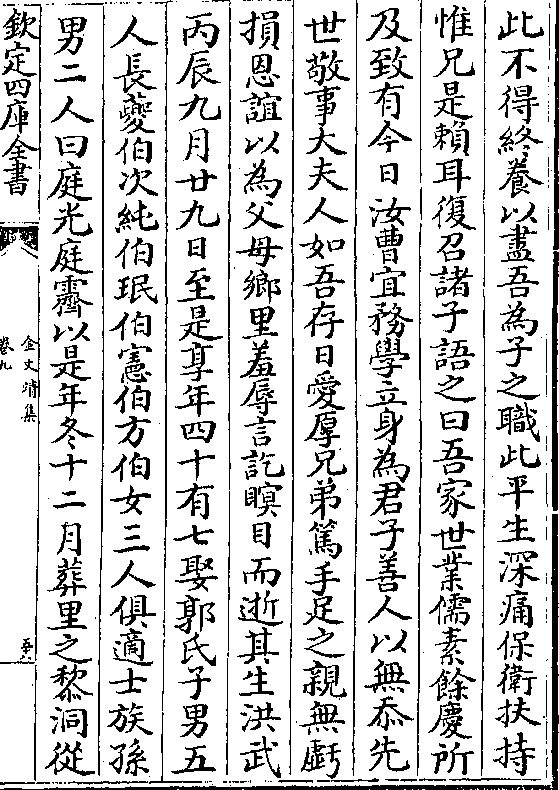 此不得終養以盡吾為子之職此平生深痛保衛扶持
惟兄是賴耳復召諸子語之曰吾家世業儒素餘慶所
及致有今日汝曹宜務學立身為君子善人以無忝先
世敬事大夫人如吾存日愛厚兄弟篤手足之親無虧
損恩誼以為父母鄉里羞辱言訖瞑目而逝其生洪武
丙辰九月廿九日至是享年四十有七娶郭氏子男五
人長夔伯次純伯珉伯憲伯方伯女三人俱適士族孫
男二人曰庭光庭霽以是年冬十二月葬里之黎洞從
欽定四庫全書
金文靖集
卷九